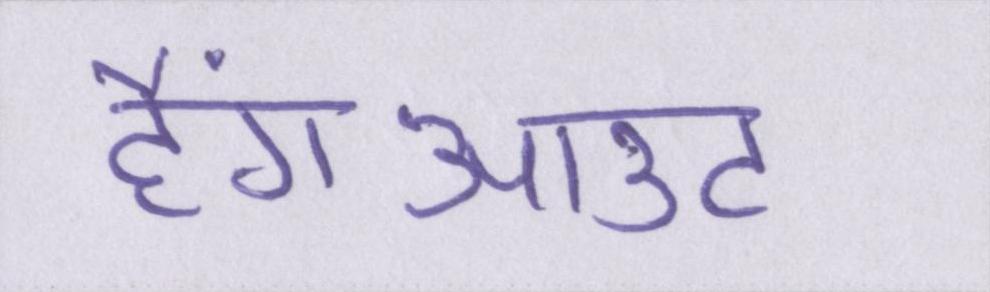 हैंगआउट